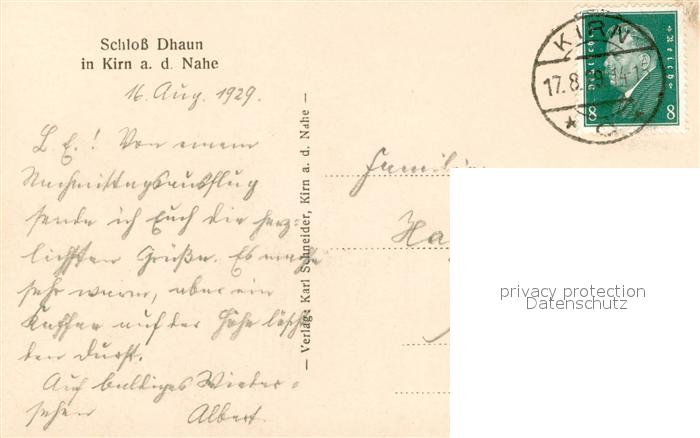 Schloß Dhaun
in Kirn a. d. Nahe
16. Aug. 1929.
L. E.! Von einem
Nachmittagsausflug
sende ich Euch die herz-
lichsten Grüße. Es
sehr warm, aber ein
Kaffee auf der Höhe löscht
den Durst.
Auf baldiges Wieder-
sehen Albert.
— Verlag: Karl Schneider, Kirn a. d. Nahe —
Familie
Ha
KIRN
17.8.
8 8
privacy protection
Datenschutz